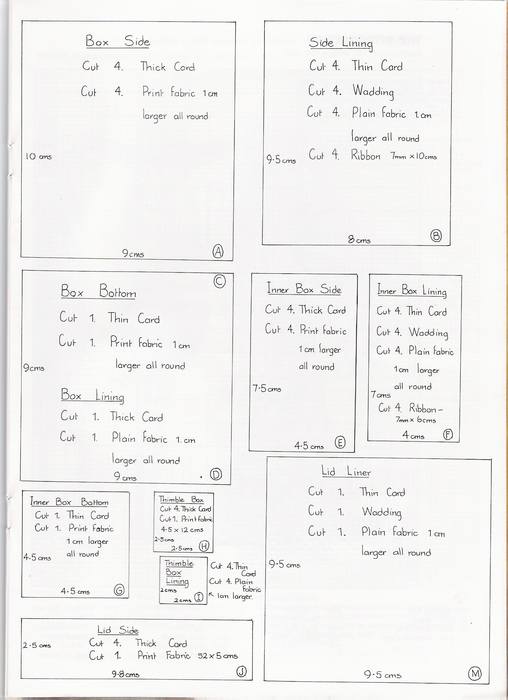 Box Side
Cut 4. Thick Card
Cut 4. Print Fabric 1cm
larger all round
10 cms
9cms
A
Side Lining
Cut 4. Thin Card
Cut 4. Wadding
Cut 4. Plain Fabric 1cm
larger all round
Cut 4. Ribbon 7mm x 10cms
9.5cms
8cms
B
C
Box Bottom
Cut 1. Thin Card
Cut 1. Print Fabric 1cm
larger all round
9cms
Box Lining
Cut 1. Thick Card
Cut 1. Plain Fabric 1cm
larger all round
9cms
D
Inner Box Side
Cut 4. Thick Card
Cut 4. Print Fabric
1cm larger
all round
7.5cms
4.5cms
E
Inner Box Lining
Cut 4. Thin Card
Cut 4. Wadding
Cut 4. Plain Fabric
1cm larger
all round
7cms
Cut 4. Ribbon-
7mm x 6cms
4cms
F
Inner Box Bottom
Cut 1. Thin Card
Cut 1. Print Fabric
1cm larger
all round
4.5cms
4.5cms
G
Thimble Box
Cut 4. Thick Card
Cut 1. Print Fabric
4.5 x 12cms
2.5cms
2.5cms
H
Thimble
Box
Lining
2cms
2cms
I
Cut 4. Thin
Card
Cut 4. Plain
Fabric
1cm larger
Lid Side
Cut 4. Thick Card
Cut 1. Print Fabric 52x5cms
2.5cms
9.8cms
J
Lid Liner
Cut 1. Thin Card
Cut 1. Wadding
Cut 1. Plain Fabric 1cm
larger all round
9.5cms
9.5cms
M